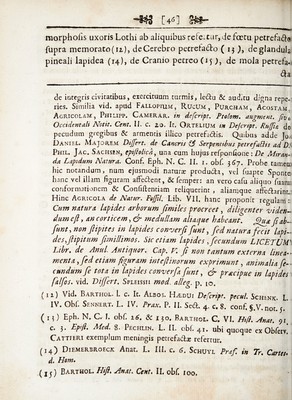 [46]
morphosis uxoris Lothi ab aliquibus refertur, de fœtu petrefacto
supra memorato (12), de Cerebro petrefacto (13), de glandula
pineali lapidea (14), de Cranio petreo (15), de mola petrefa-
cta
de integris civitatibus, exercituum turmis, lectu & auditu digna repe-
ries. Similia vid. apud FALLOPIUM, RUEUM, PURCHAM, ACOSTAM,
AGRICOLAM, PHILIPP. CAMERAR. in descript. Ptolom. augment. sive
Occidentali Notit. Cent. II. c. 20. It. ORTELIUM in Descript. Russiæ de
pecudum gregibus & armentis illico petrefactis. Quibus adde Jo.
DANIEL. MAJOREM Dissert. de Cancris & Serpentibus petrefactis ad D.
PHIL. JAC. SACHSN, epistolica, una cum hujus responsione: De Miran-
da Lapidum Natura. Conf. Eph. N. C. II. 1. obs. 367. Probe tamen
hic notandum, num ejusmodi naturæ producta, vel suapte Sponte
hanc vel illam figuram affectent, & semper: an vero casu aliquo suam
conformationem & Consistentiam reliquerint, aliamque affectarint.
Hinc AGRICOLA de Natur. Fossil. Lib. VII. hanc proponit regulam:
Cum natura lapides arborum similes procreet, diligenter viden-
dum est, an corticem, & medullam aliaque habeant. Quæ si ab-
sunt, non stipites in lapides conversi sunt, sed natura fecit lapi-
des, stipitum simillimos. Sic etiam lapides, secundum LICETUM
Libr. de Anul. Antiquor. Cap. V. si non tantum externa linea-
menta, sed etiam figuram intestinorum exprimunt, animalia se-
cundum se tota in lapides conversa sunt, & præcipue in lapides
falsos. vid. Dissert. SPLEISSII mod. alleg. p. 10.
(12) Vid. BARTHOL. l. c. It. ALBOS. HÆDUI Descript. pecul. SCHENK. L.
IV. Obs. SENNERT. L. IV. Prax. P. II. Sect. 4. c. 8. conf. §. V. not. 5.
(13) Eph. N. C. I. obs. 26. & 130. BARTHOL. C. VI. Hist. Anat. 91.
c. 3. Epist. Med. 8. PECHLIN. L. II. obs. 41. ubi quoque ex Observ.
CATTIERI exemplum meningis petrefactæ refertur.
(14) DIEMERBROECK Anat. L. III. c. 6. SCHUYL Præf. in Tr. Cartes.
d. Hom.
(15) BARTHOL. Hist. Anat. Cent. II. obs. 100.